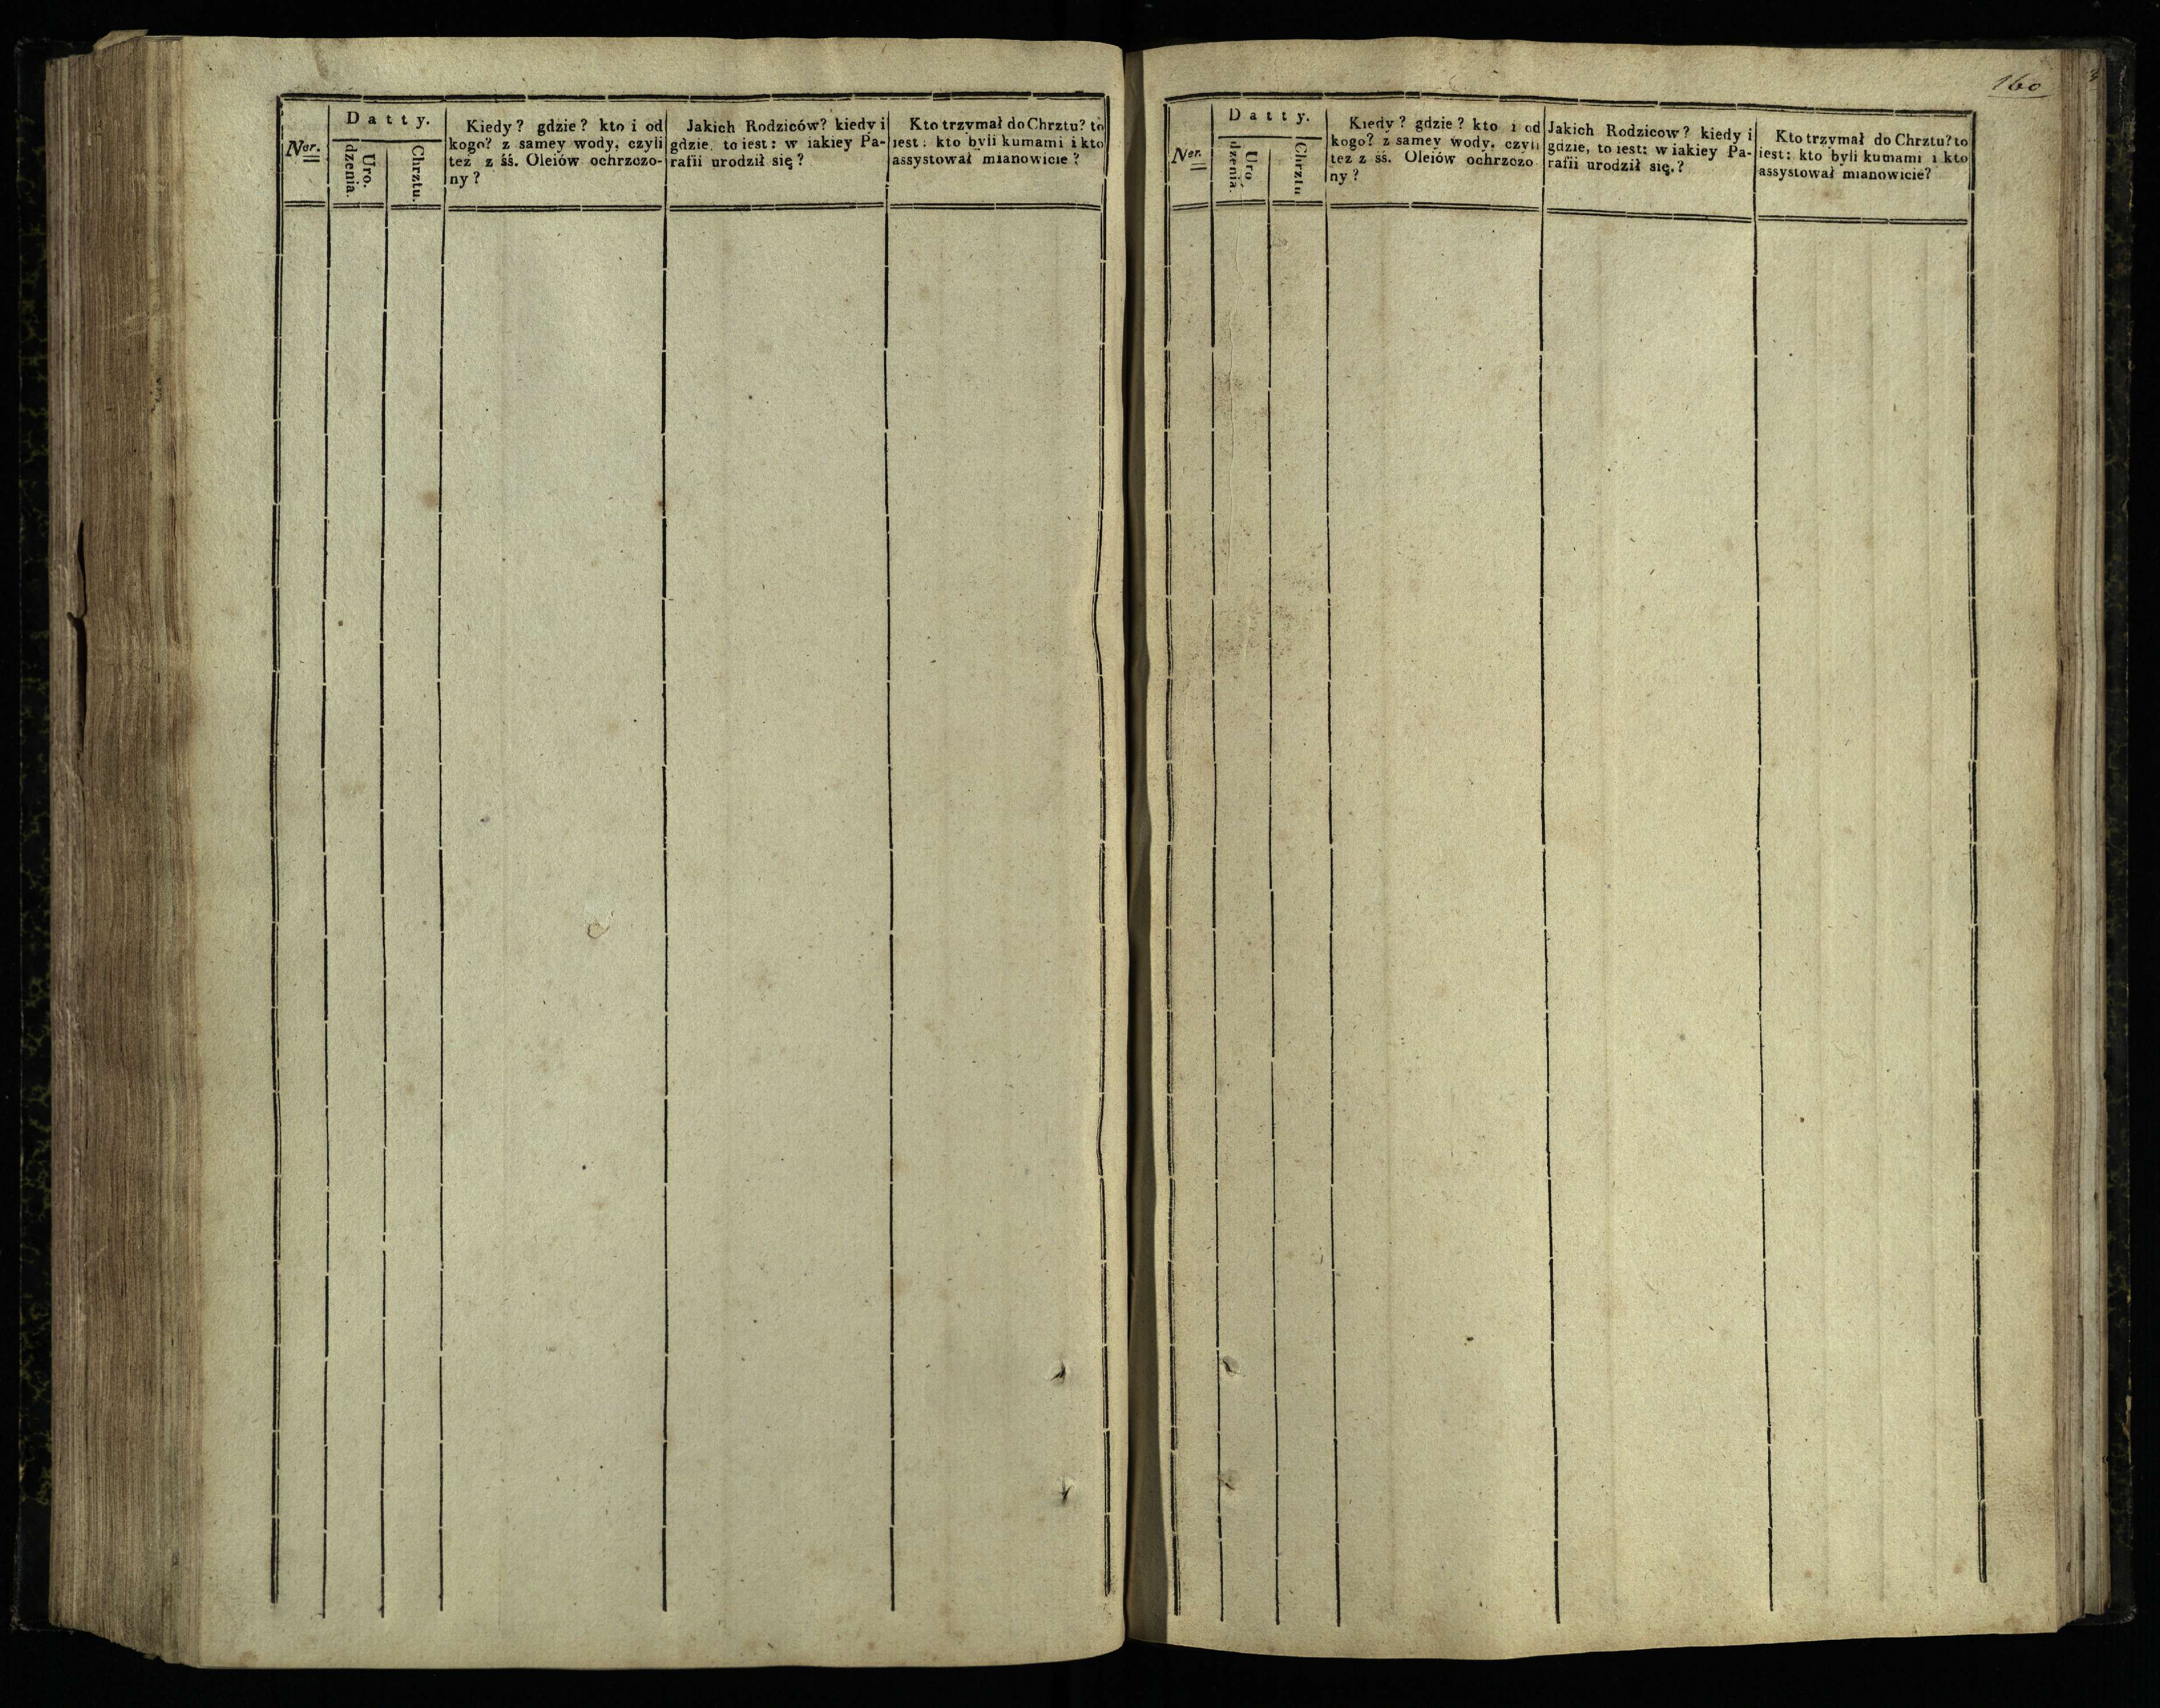 Ner.
Datty.
Uro.
dzenia.
Chrztu.
Kiedy? gdzie? kto i od
kogo? z samey wody, czyli
tez z śś. Oleiów ochrzczo-
ny?
Jakich Rodziców? kiedy i
gdzie, to iest: w iakiey Pa-
rafii urodził się?
Kto trzymał do Chrztu? to
iest: kto byli kumami i kto
assystował mianowicie?
160
Ner.
Datty.
Uro
dzenia.
Chrztu
Kiedy? gdzie? kto i od
kogo? z samey wody, czyli
tez z śś. Oleiów ochrzczo
ny?
Jakich Rodzicow? kiedy i
gdzie, to iest: w iakiey Pa-
rafii urodził się.?
Kto trzymał do Chrztu? to
iest: kto byli kumami i kto
assystował mianowicie?